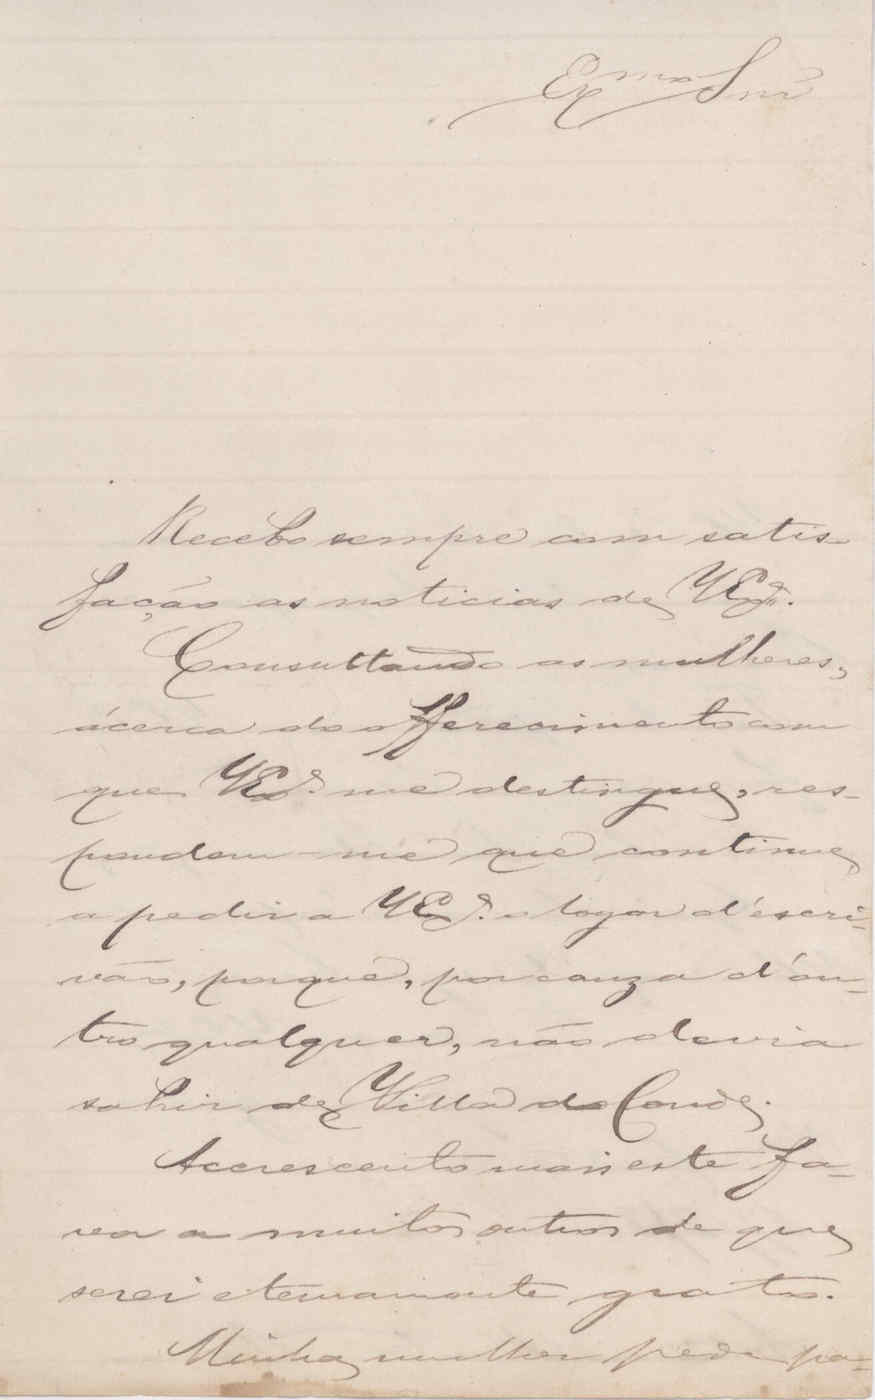 Exmo Snr
Recebo sempre com satis-
fação as noticias de V Ex.ª
Consultando as mulheres,
ácerca do offerecimento com
que V Ex.ª me destingue, res-
pondem-me que continue
a pedir a V Ex.ª o logar d'escri-
vão, porque, por cauza d'ou-
tro qualquer, não devia
sahir de Villa do Conde.
Accrescento mais este fa-
vor a muitos outros de que
serei eternamente grato.
Minha mulher pede pa-